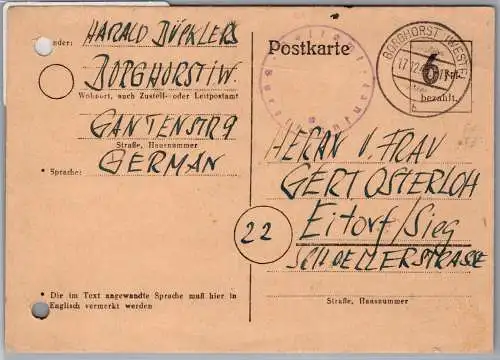 nder: HARALD BÜCKLERS
BORGHORST i W.
Wohnort, auch Zustell- oder Leitpostamt
GANTENSTR 9
Straße, Hausnummer
* Sprache: GERMAN
* Die im Text angewandte Sprache muß hier in
Englisch vermerkt werden
Postkarte
BORGHORST (WESTF)
17.12.
6
bezahlt.
HERRN U. FRAU
GERT OSTERLOH
22
Eitorf/Sieg
SCHOELLERSTRASSE
Straße, Hausnummer